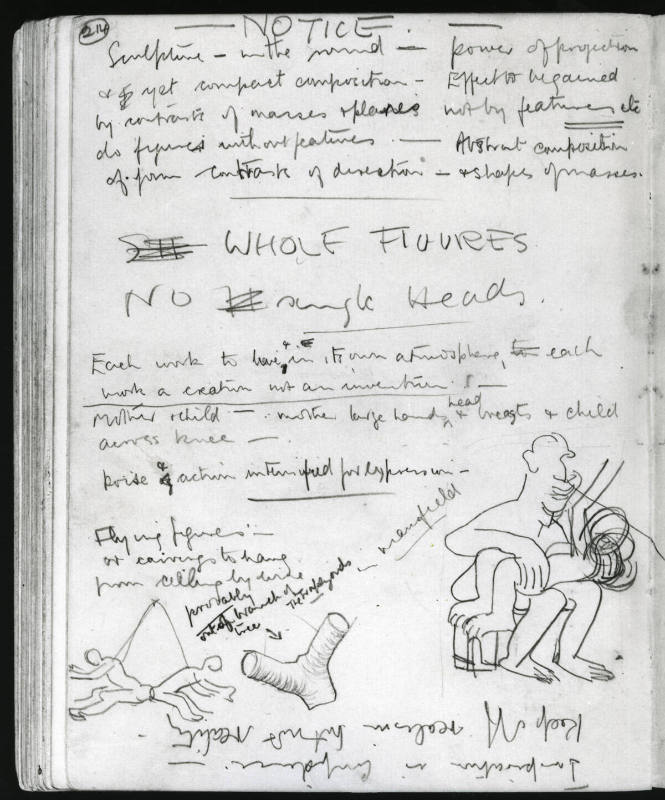 214
NOTICE.
Sculpture – in the round — power of projection
& yet compact composition – Effect to be gained
by contrasts of masses & planes not by features etc
do figures without features. — Abstract composition
of form contrasts of direction – & shapes of masses.
WHOLE FIGURES
NO single Heads.
Each work to have, & in its own atmosphere, each
work a creation not an invention. —
Mother & child — mother large hands, head & breasts & child
across knee —
poise & action intensified for expression –
Flying figures –
or carvings to hang
from ceiling by wire
probably
out of branch of
tree
mansfield
Keep off realism but not reality
Inspiration is confidence. —